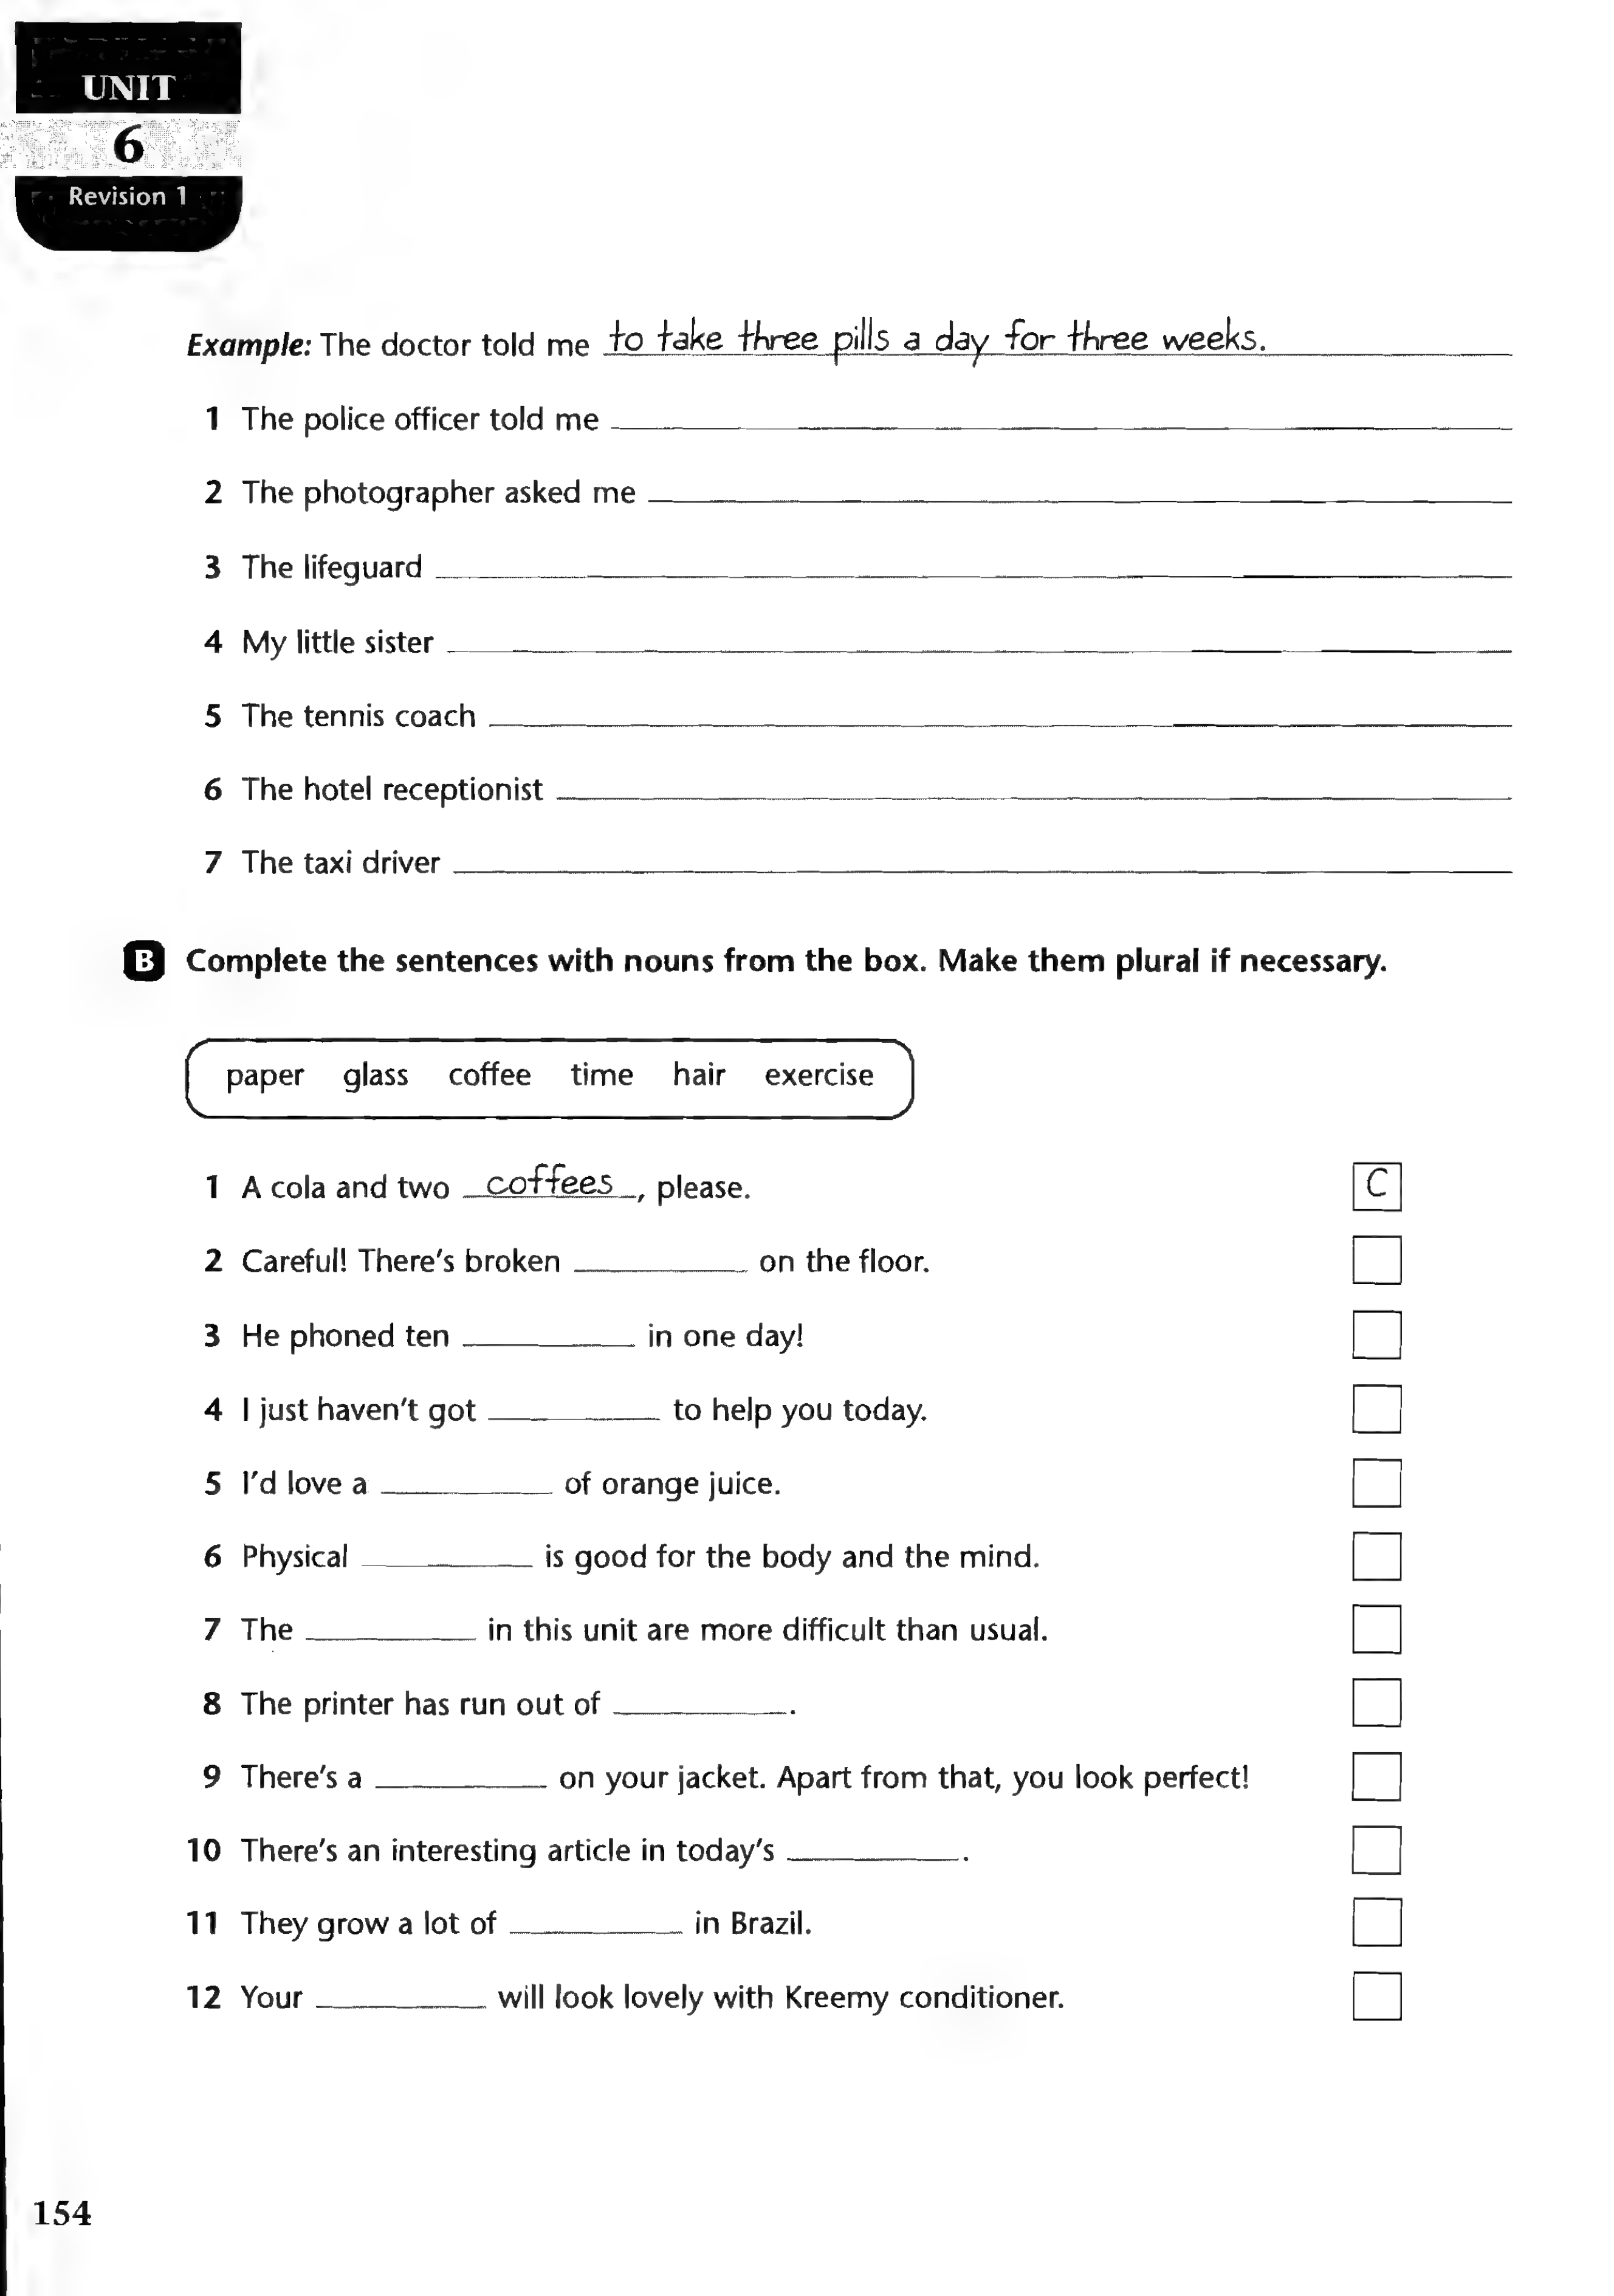 UNIT
6
Revision 1
Example: The doctor told me to take three pills a day for three weeks.
1 The police officer told me
2 The photographer asked me
3 The lifeguard
4 My little sister
5 The tennis coach
6 The hotel receptionist
7 The taxi driver
B Complete the sentences with nouns from the box. Make them plural if necessary.
paper glass coffee time hair exercise
1 A cola and two coffees, please. C
2 Careful! There's broken ________ on the floor.
3 He phoned ten ________ in one day!
4 I just haven't got ________ to help you today.
5 I'd love a ________ of orange juice.
6 Physical ________ is good for the body and the mind.
7 The ________ in this unit are more difficult than usual.
8 The printer has run out of ________.
9 There's a ________ on your jacket. Apart from that, you look perfect!
10 There's an interesting article in today's ________.
11 They grow a lot of ________ in Brazil.
12 Your ________ will look lovely with Kreemy conditioner.
154